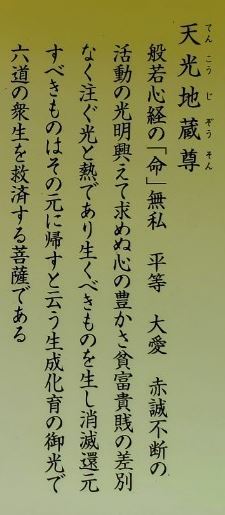 天光地蔵尊
てんこうじぞうそん
般若心経の「命」無私　平等　大愛　赤誠不断の
活動の光明興えて求めぬ心の豊かさ貧富貴賎の差別
なく注ぐ光と熱であり生くべきものを生し消滅還元
すべきものはその元に帰すと云う生成化育の御光で
六道の衆生を救済する菩薩である